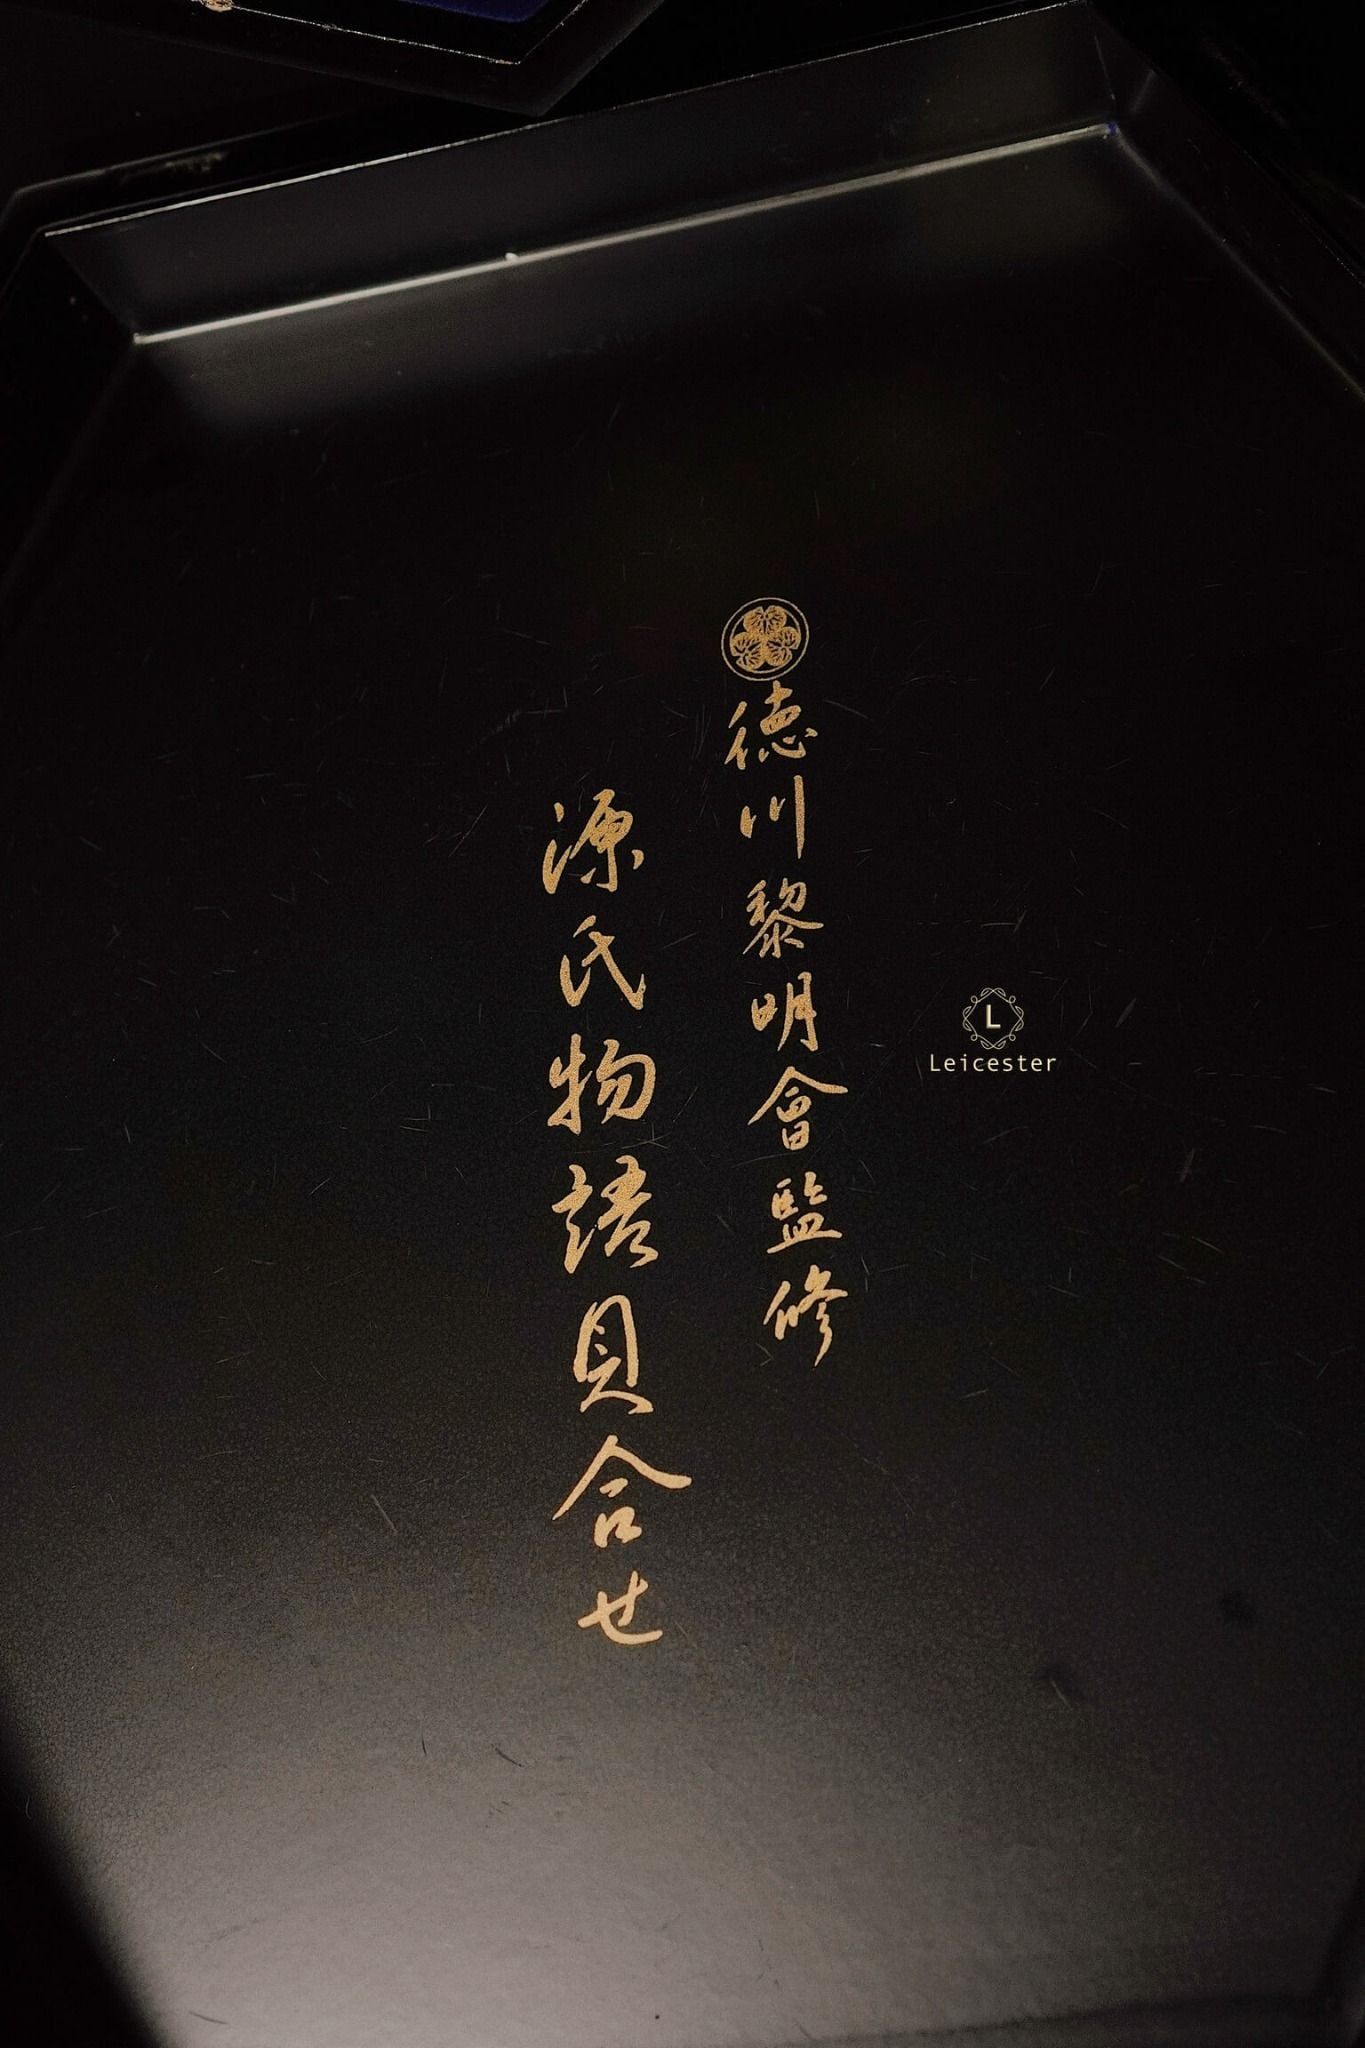 徳川黎明會監修
源氏物語貝合せ
L
Leicester